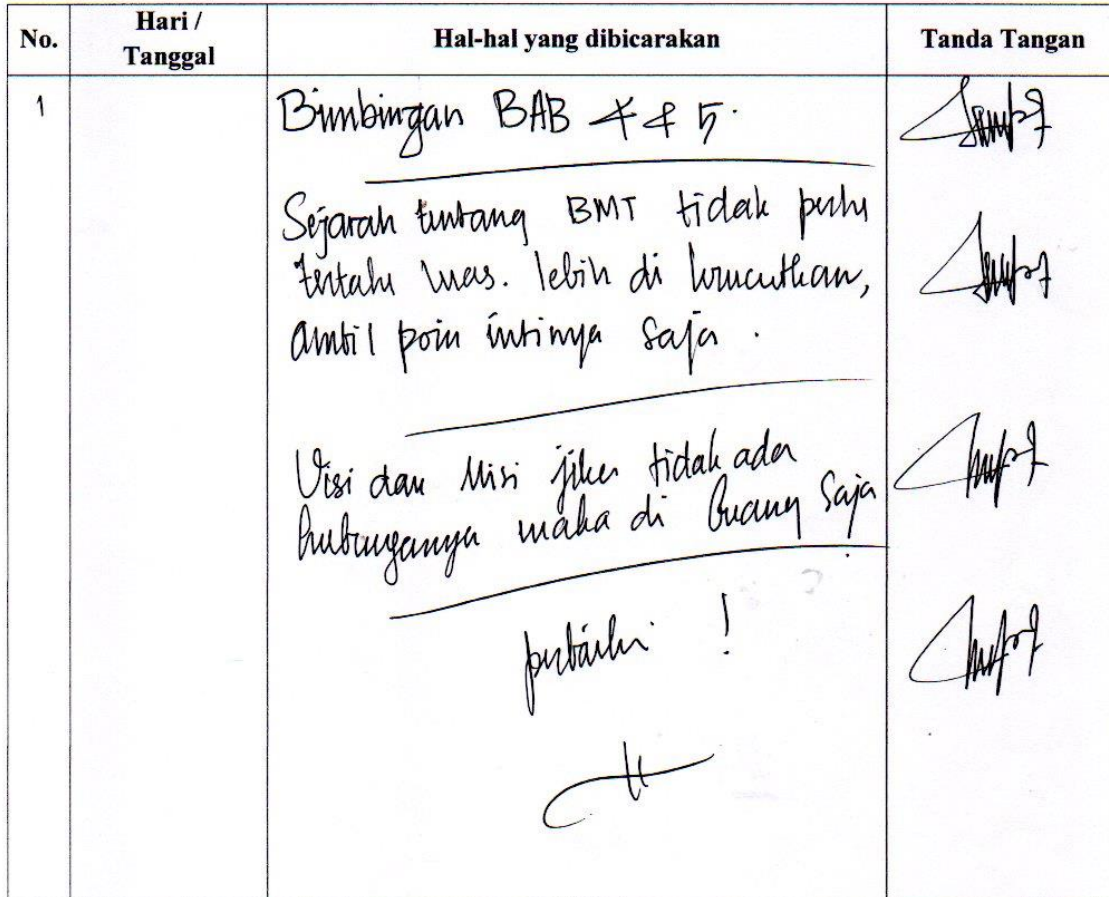 No.
Hari /
Tanggal
Hal-hal yang dibicarakan
Tanda Tangan
1
Bimbingan BAB 4 & 5.
Sejarah tentang BMT tidak perlu
terlalu luas. lebih di kerucutkan,
ambil poin intinya saja.
Visi dan Misi jika tidak ada
hubunganya maka di buang saja
perbaiki !